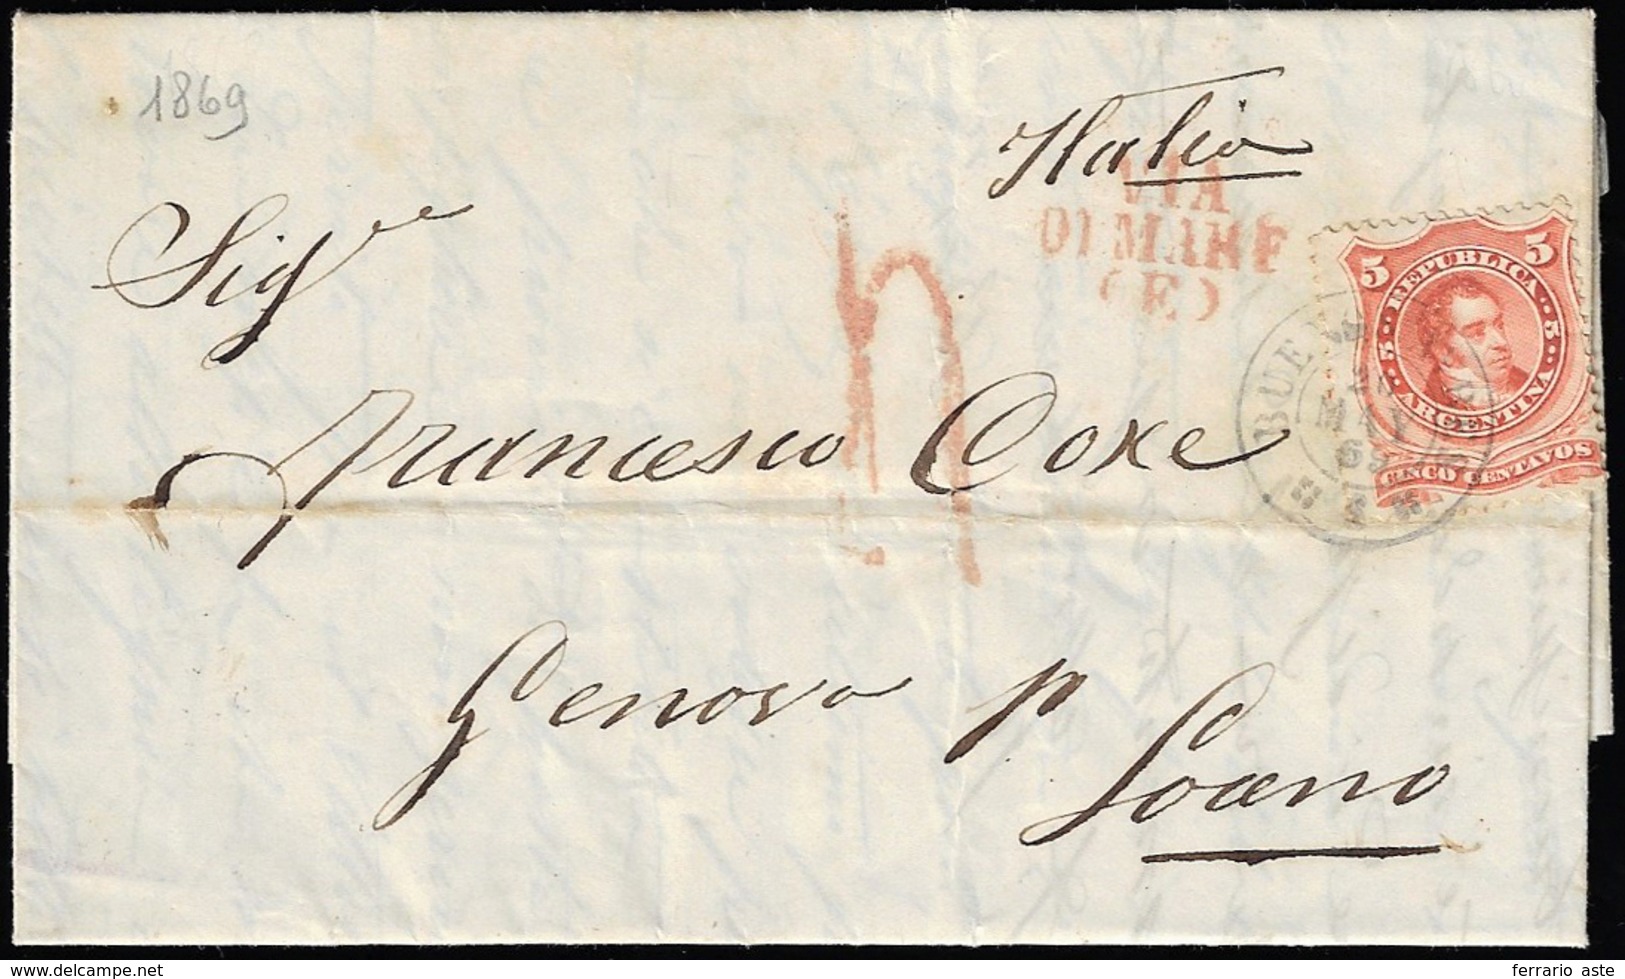 1869
Italia
VIA
DI MARE
(E)
Sig.re
5 5
REPUBLICA
5 5
ARGENTINA
CINCO CENTAVOS
BUENOS
MAY
69
Francesco Coxe
Genova p
Loano
www.delcampe.net
ferrario aste